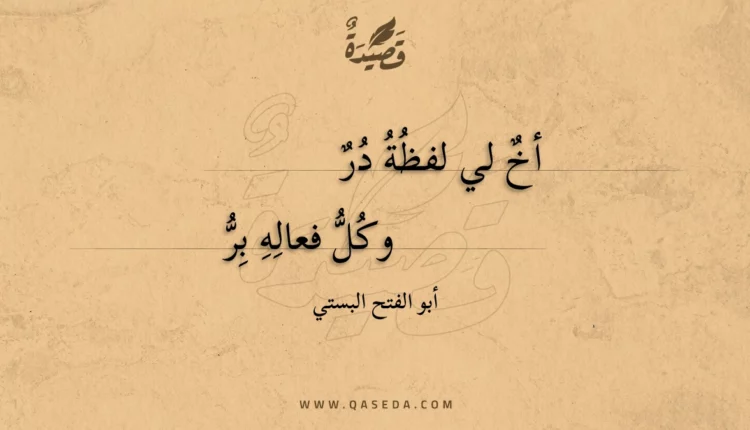 قَصِيدَةٌ
أخٌ لي لفظُةُ دُرٌ
وكُلُّ فعالِهِ بِرُّ
أبو الفتح البستي
WWW.QASEDA.COM